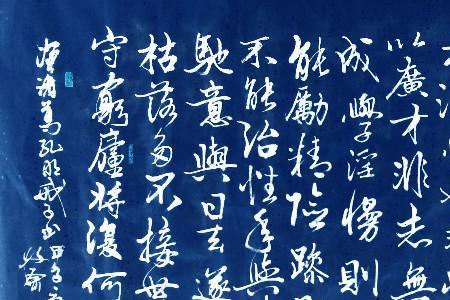 以廣才非志無
成學淫慢則
能勵精險躁
不能治性年與
馳意與日去遂
枯落多不接世
守窮廬將復何
諸葛孔明戒子書